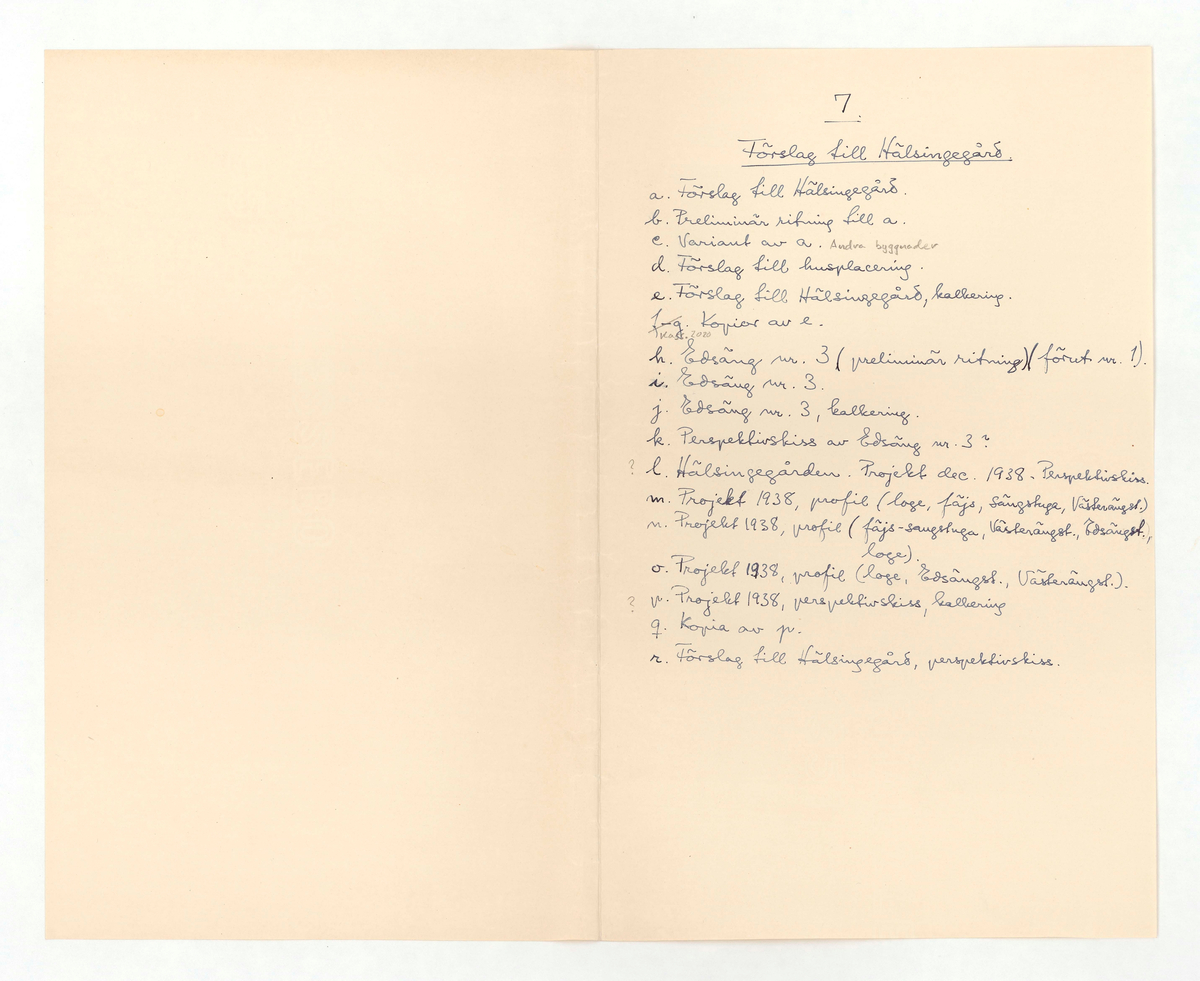 7.
Förslag till Hälsingegård.
a. Förslag till Hälsingegård.
b. Preliminär ritning till a.
c. Variant av a. Andra byggnader
d. Förslag till husplacering.
e. Förslag till Hälsingegård, kalkering.
f-g. Kopior av e.
Kass. 2020
h. Edsäng nr. 3 (preliminär ritning) (förut nr. 1).
i. Edsäng nr. 3.
j. Edsäng nr. 3, kalkering.
k. Perspektivskiss av Edsäng nr. 3?
? l. Hälsingegården. Projekt dec. 1938 - Perspektivskiss.
m. Projekt 1938, profil (loge, fäjs, sängstuga, Västerängst.)
n. Projekt 1938, profil (fäjs-sangstuga, Västerängst., Edsängst.,
loge).
o. Projekt 1938, profil (loge, Edsängst., Västerängst.).
? p. Projekt 1938, perspektivskiss, kalkering
q. Kopia av p.
r. Förslag till Hälsingegård, perspektivskiss.